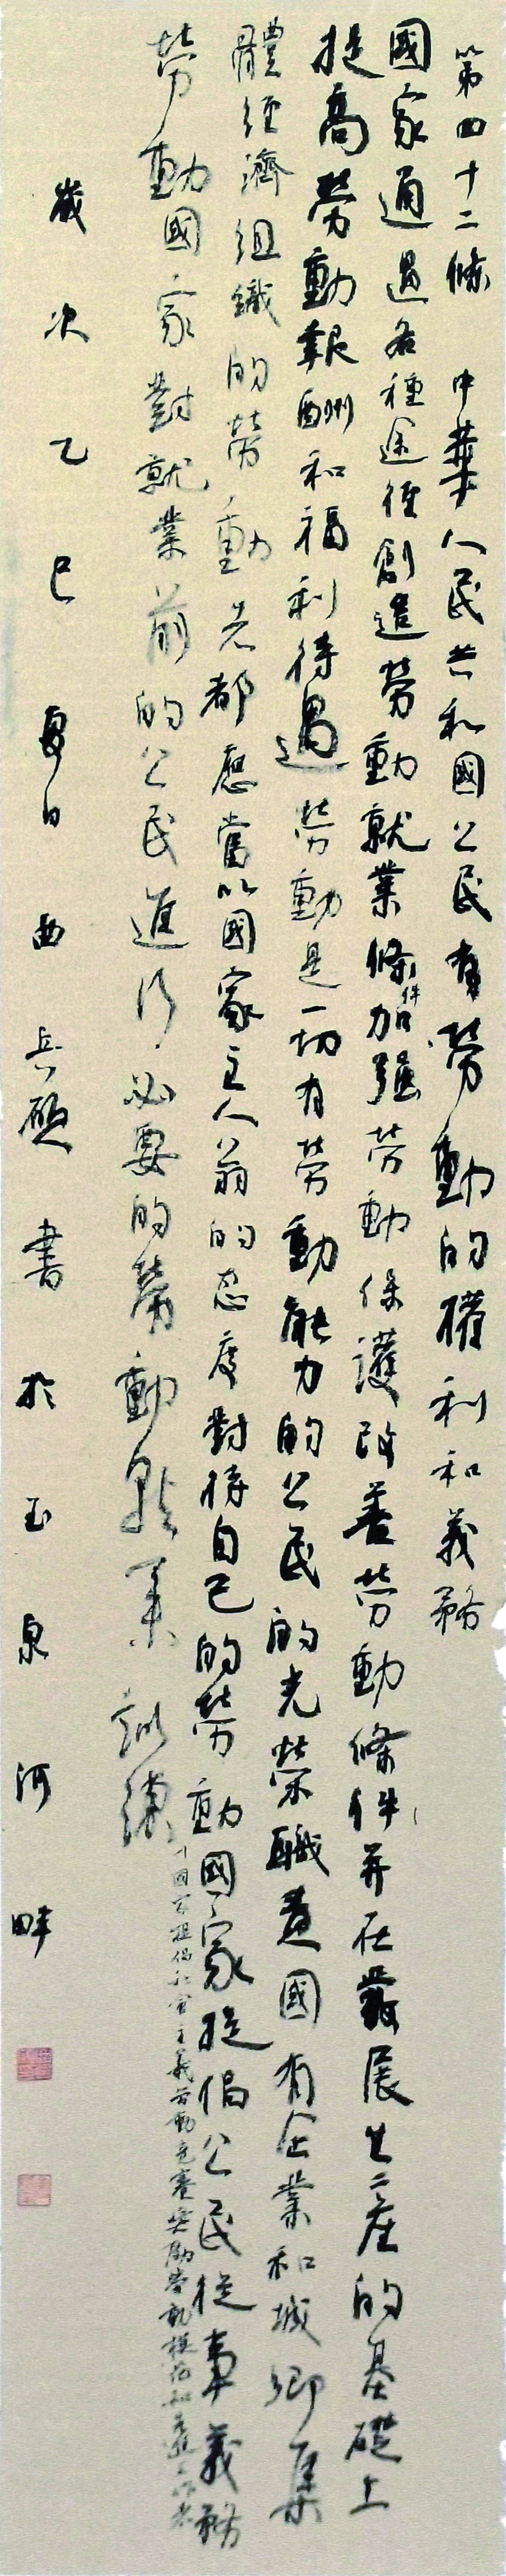 第四十二條 中華人民共和國公民有勞動的權利和義務
國家通過各種途徑創造勞動就業條件加強勞動保護改善勞動條件并在發展生產的基礎上
提高勞動報酬和福利待遇勞動是一切有勞動能力的公民的光榮職責國有企業和城鄉集
體經濟組織的勞動者都應當以國家主人翁的态度對待自己的勞動國家提倡公民從事義務
勞動國家對就業前的公民進行必要的勞動就業訓練
國家提倡社會主義勞動競賽獎勵勞動模範和先進工作者
歲次乙巳夏日 書於玉泉河畔